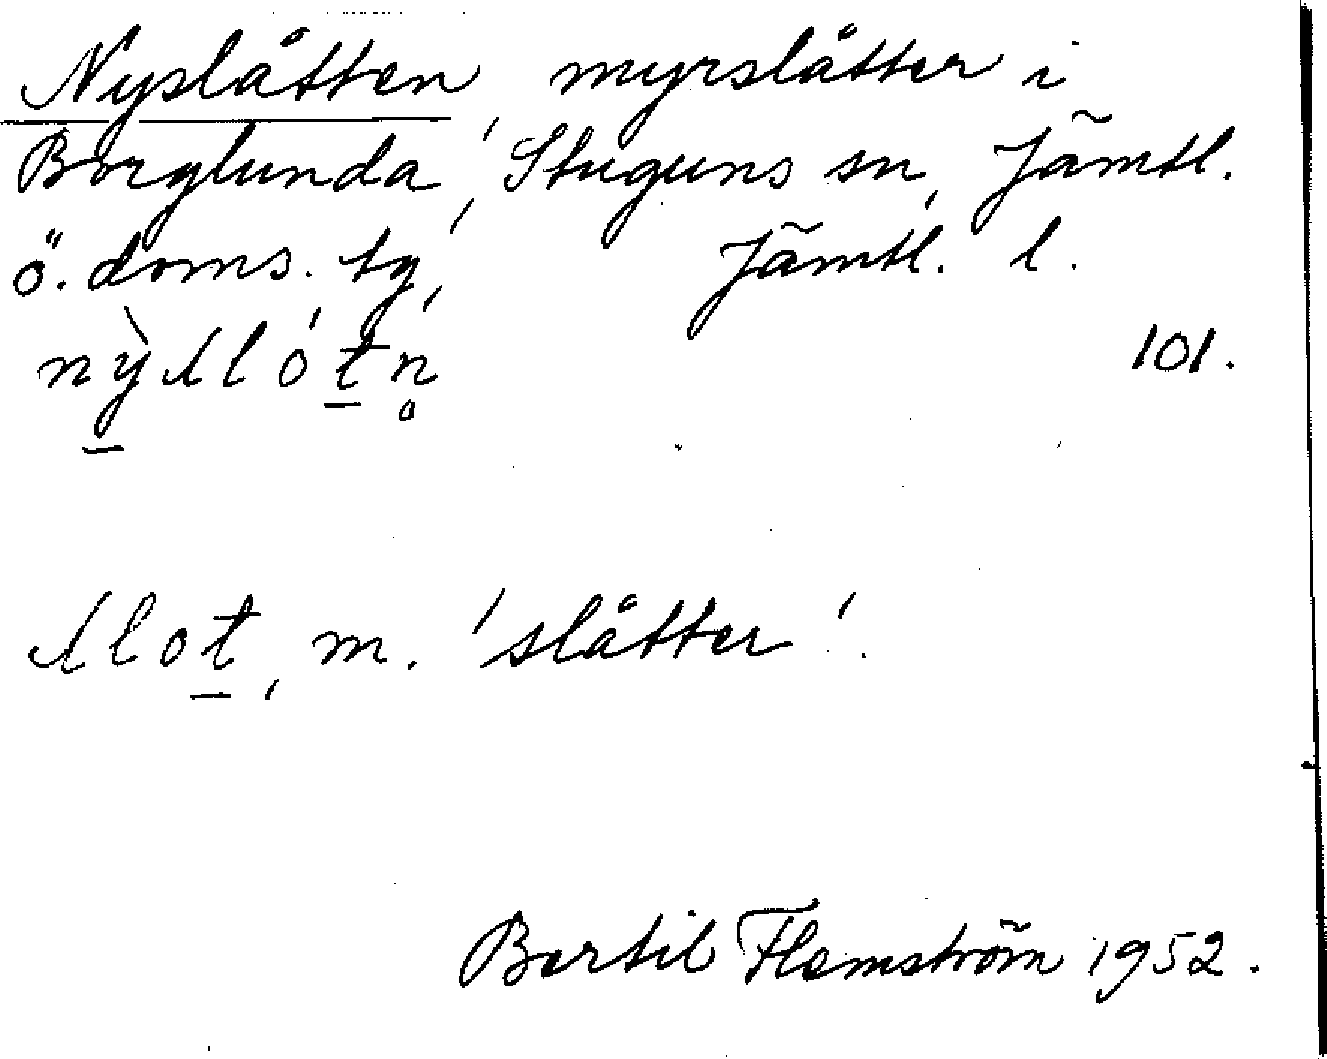 Nyslåtten, myrslåtter i
Borglunda, Stuguns sn, Jämtl.
ö. doms. tg, Jämtl. l.
101.
m. 'slåtter'.
Bertil Flemström 1952.